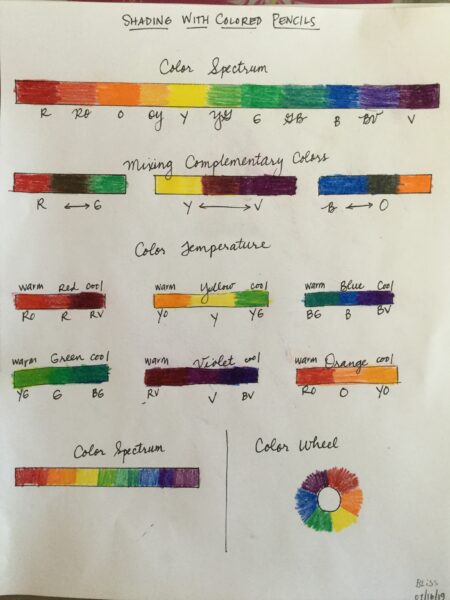 Shading With Colored Pencils
Color Spectrum
R RO O OY Y YG G GB B BV V
Mixing Complementary Colors
R ↔ G Y ↔ V B ↔ O
Color Temperature
warm Red cool warm Yellow cool warm Blue cool
RO R RV YO Y YG BG B BV
warm Green cool warm Violet cool warm Orange cool
YG G BG RV V BV RO O YO
Color Spectrum
Color Wheel
Bliss
07/16/19